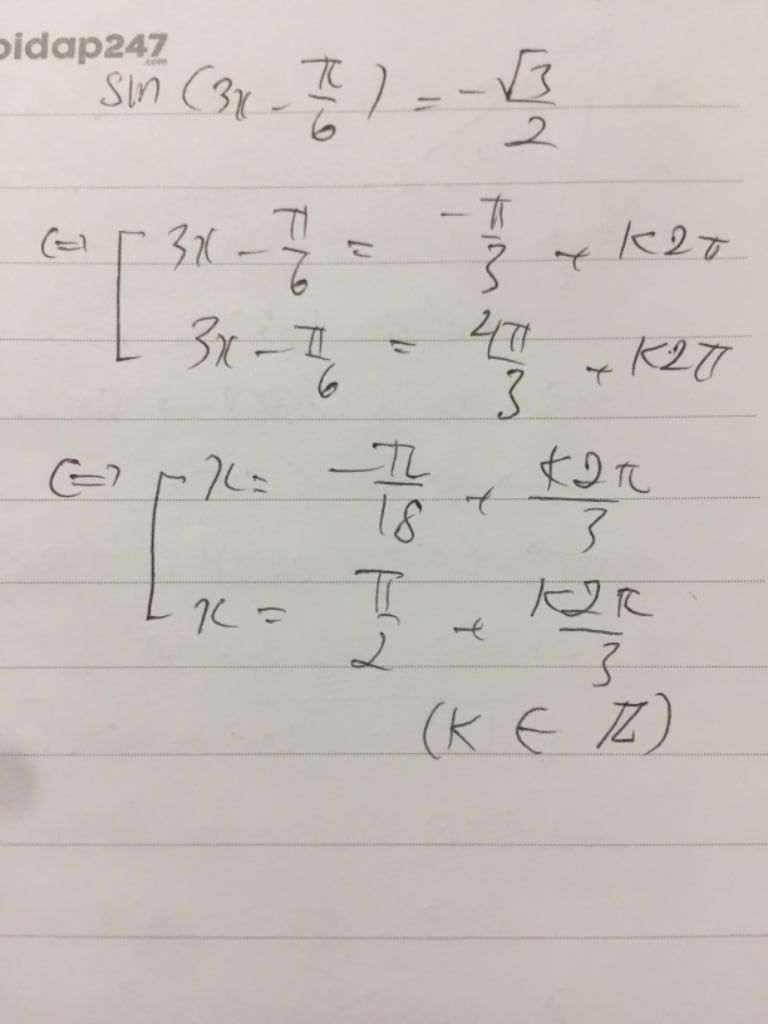 oidap247
.com
sin (3x - π/6) = - √3/2
<=> [ 3x - π/6 = -π/3 + k2π
3x - π/6 = 4π/3 + k2π
<=> [ x = -π/18 + k2π/3
x = π/2 + k2π/3
(k ∈ ℤ)